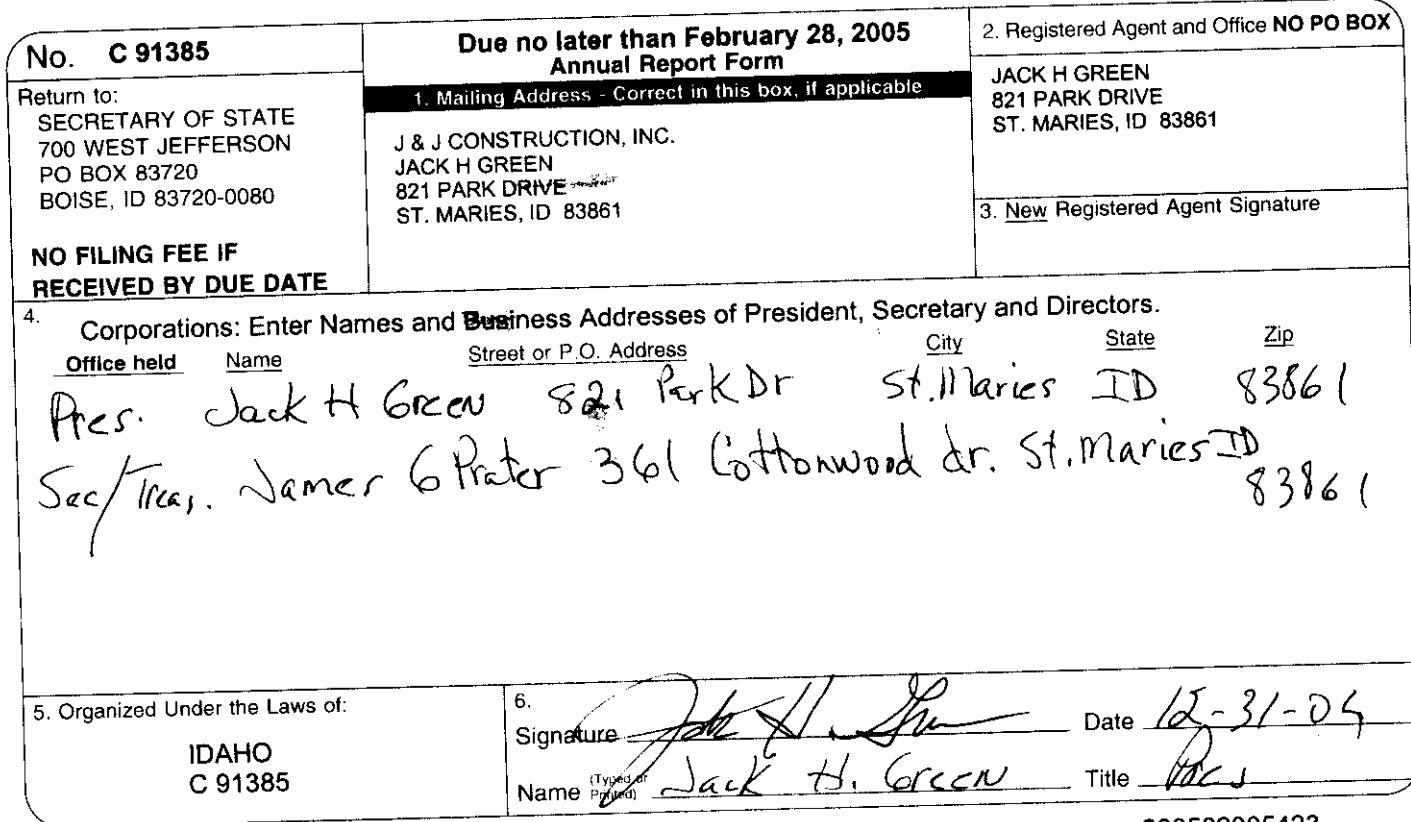 No. C 91385
Return to:
SECRETARY OF STATE
700 WEST JEFFERSON
PO BOX 83720
BOISE, ID 83720-0080
NO FILING FEE IF
RECEIVED BY DUE DATE
Due no later than February 28, 2005
Annual Report Form
1. Mailing Address - Correct in this box, if applicable
J & J CONSTRUCTION, INC.
JACK H GREEN
821 PARK DRIVE
ST. MARIES, ID 83861
2. Registered Agent and Office NO PO BOX
JACK H GREEN
821 PARK DRIVE
ST. MARIES, ID 83861
3. New Registered Agent Signature
4. Corporations: Enter Names and Business Addresses of President, Secretary and Directors.
Office held Name Street or P.O. Address City State Zip
Pres. Jack H Green 821 Park Dr St. Maries ID 83861
Sec/Treas. James G Prater 361 Cottonwood dr. St. Maries ID
83861
5. Organized Under the Laws of:
IDAHO
C 91385
6.
Signature Jack H. Green Date 12-31-04
Name (Typed or Printed) Jack H. Green Title Pres